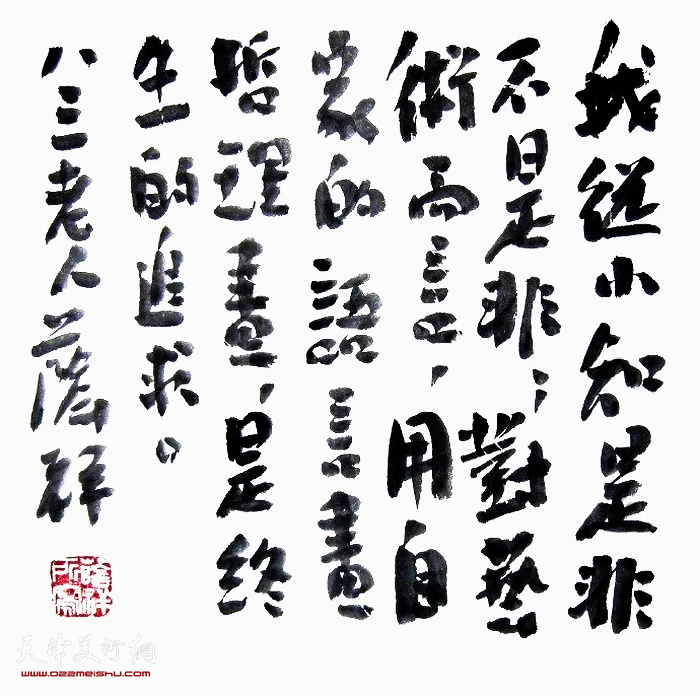 我從小知是非
不是非；對藝
術而言，用自
家的語言畫
哲理畫，是終
生的追求。
八三老人祥
天津美术網
www.022meishu.com